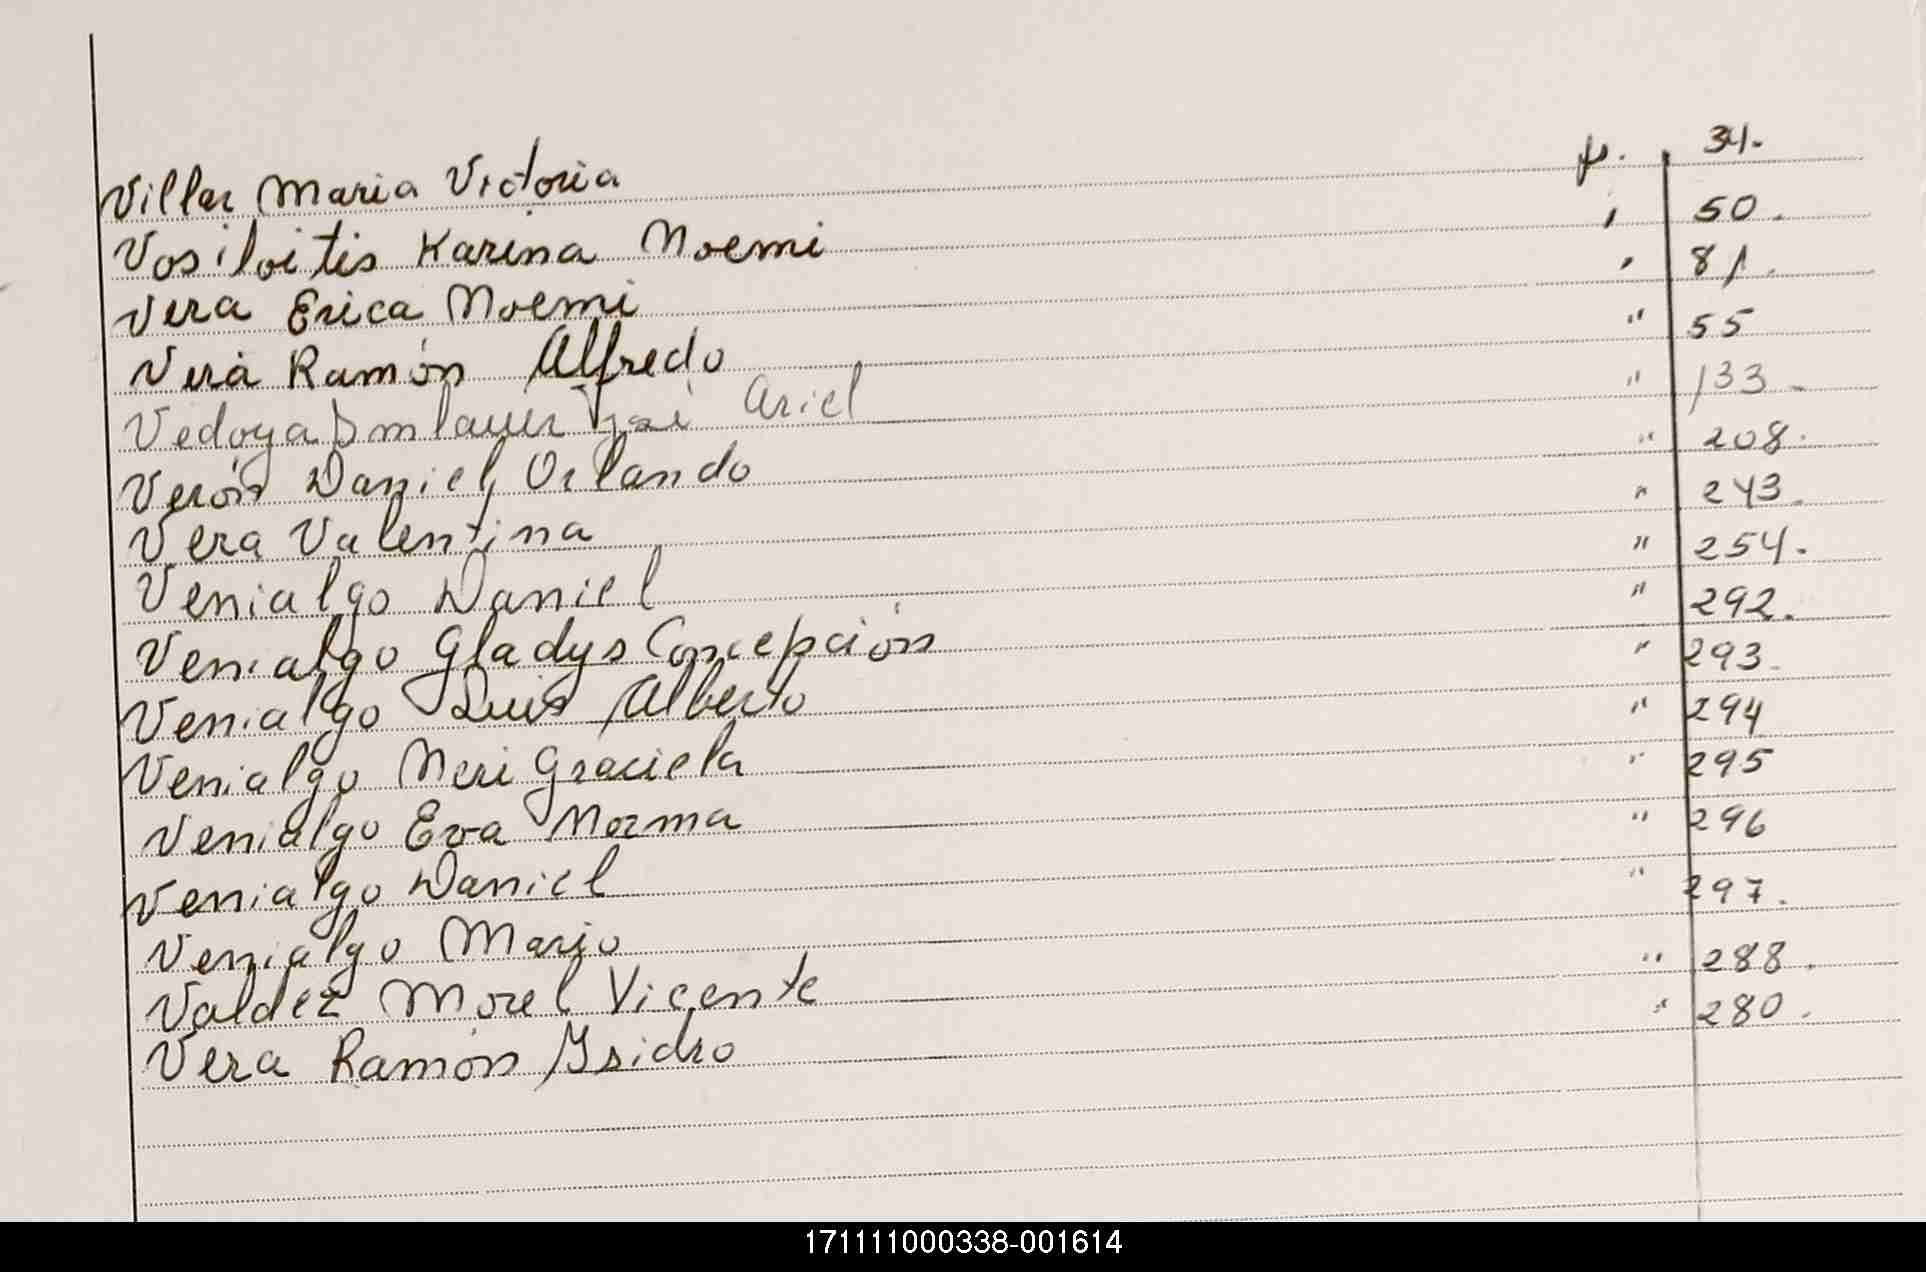 Villar Maria Victoria p. 34.
Vosiloitis Karina Noemi " 50.
Vera Erica Noemi " 81.
Vera Ramón Alfredo " 55
Vedoya José Ariel " 133
Verón Daniel Orlando " 208.
Vera Valentina " 243.
Venialgo Daniel " 254.
Venialgo Gladys Concepción " 292.
Venialgo Luis Alberto " 293.
Venialgo Neri Graciela " 294
Venialgo Eva Norma " 295
Venialgo Daniel " 296
Venialgo Mario " 297.
Valdez Morel Vicente " 288.
Vera Ramón Ysidro " 280.
171111000338-001614